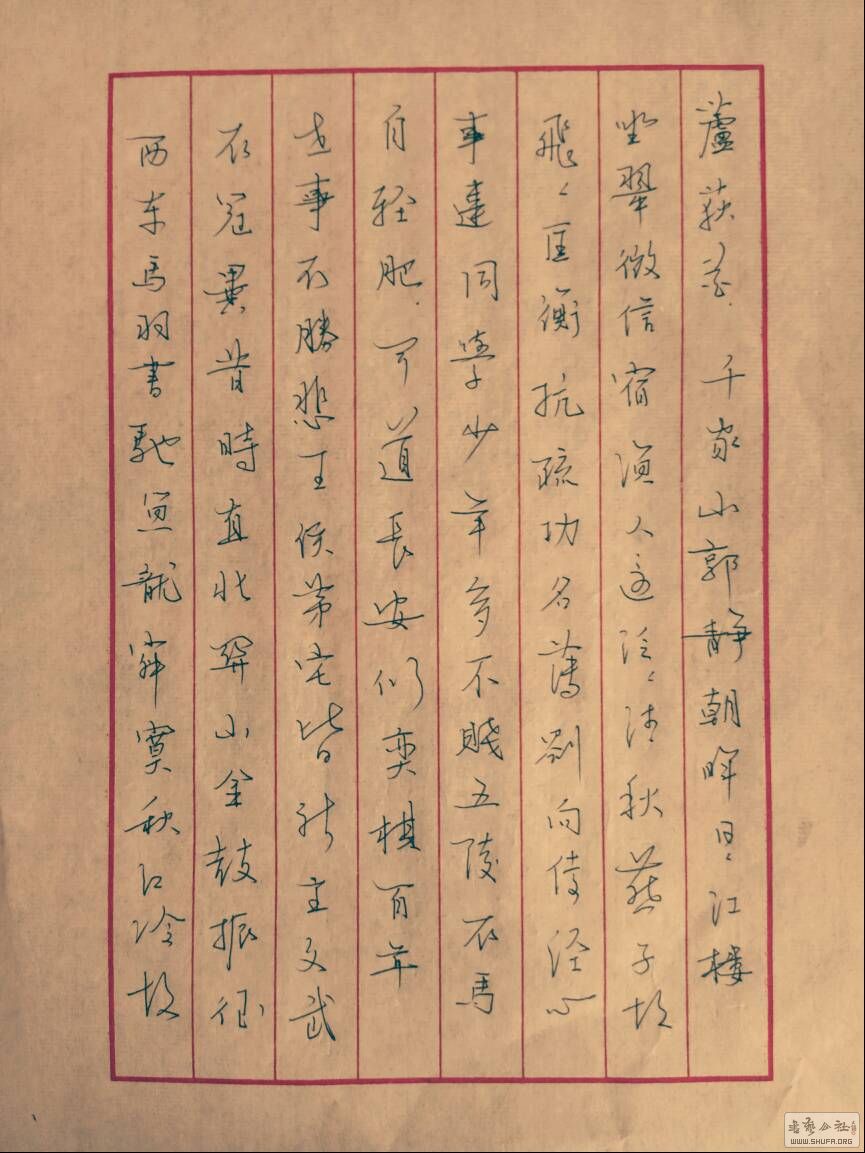 蘆荻花 千家山郭靜朝暉日〻江樓
坐翠微信宿漁人還泛〻清秋燕子故
飛〻匡衡抗疏功名薄劉向傳經心
事違同學少年多不賤五陵衣馬
自輕肥 聞道長安似奕棋百年
世事不勝悲王侯第宅皆新主文武
衣冠異昔時直北關山金鼓振征
西車馬羽書馳魚龍寂寞秋江冷故
書藝公社
WWW.SHUFA.ORG